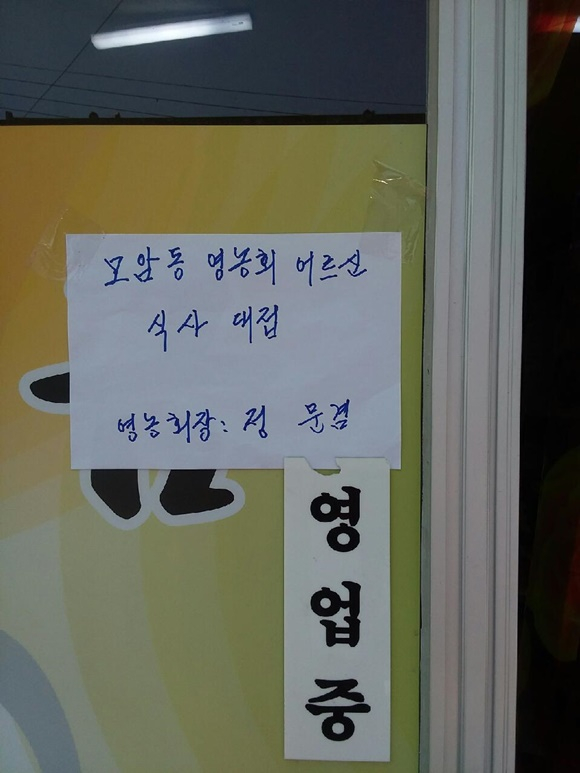 모암동 영농회 어르신
식사 대접
영농회장: 정 문겸
영업중